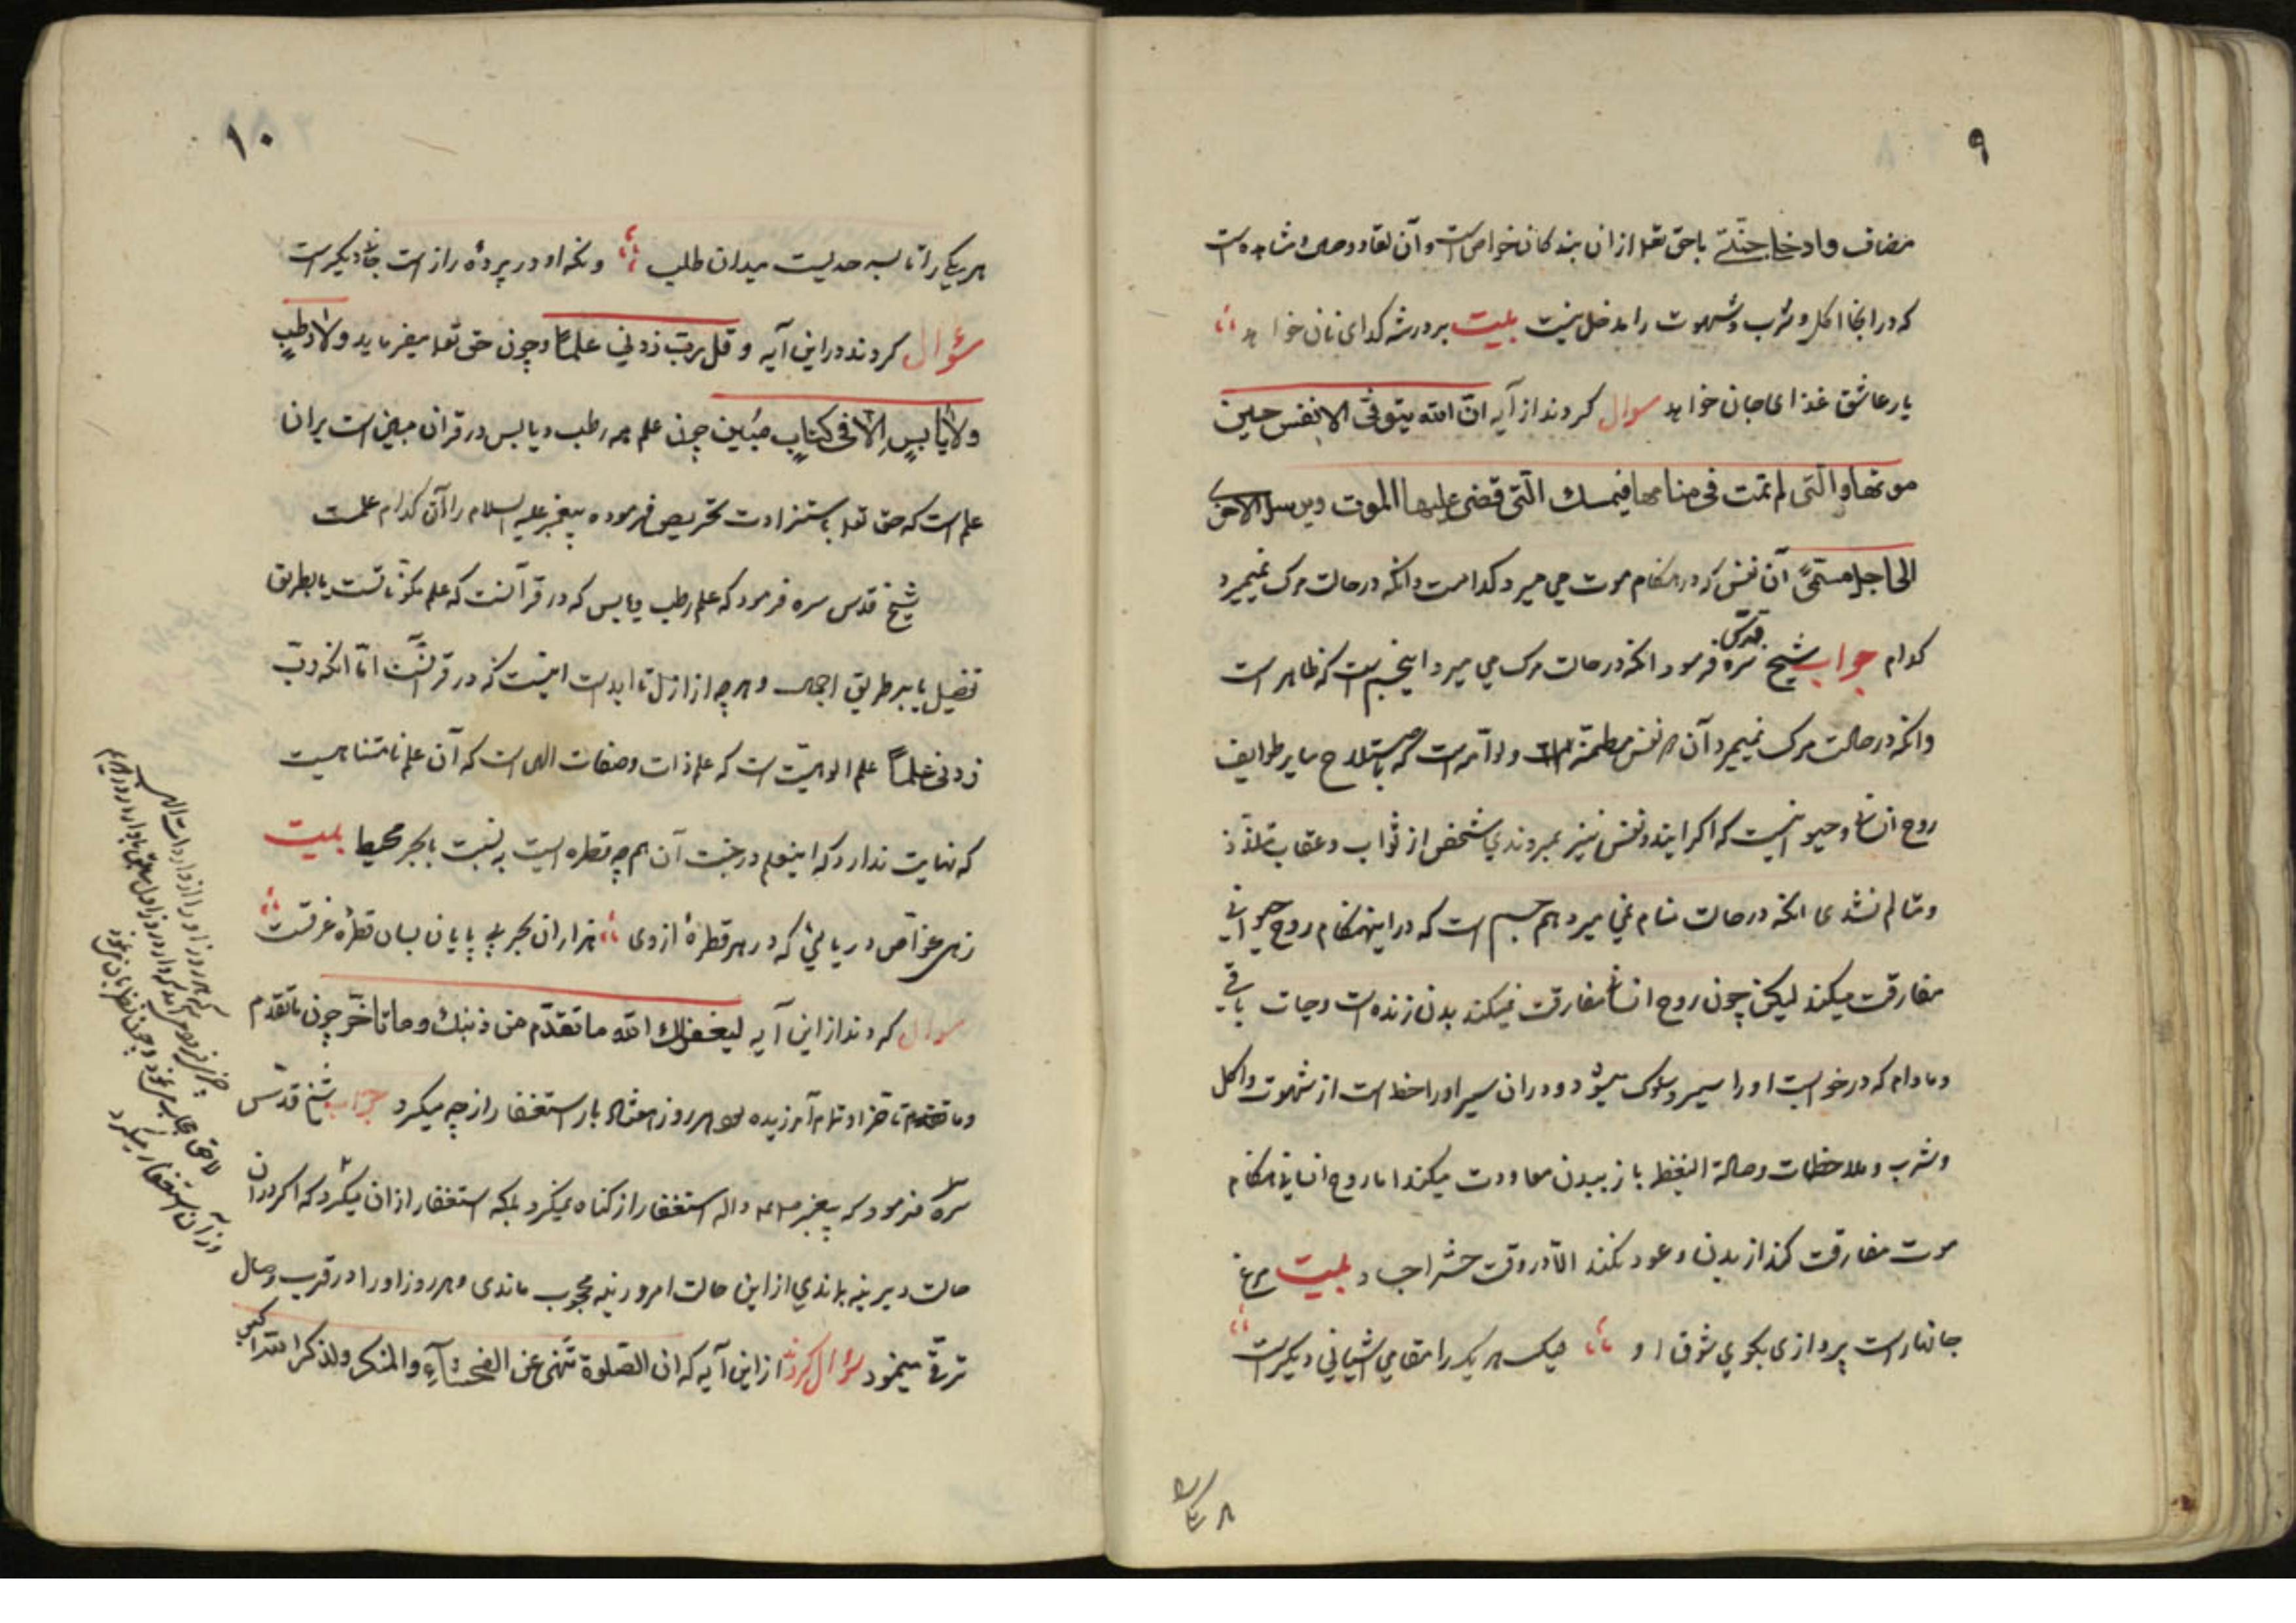 ۹
مضاف وادخلی جنتی باحق تعا از ان بندکان خواص است وآن لقاء ووصال و مشاهده است
که در انجا اکل و شرب و شهوت را مدخل نیست بیت بر درشه کدای نان خواهد
یار عاشق غذای جان خواهد سوال کردند از آیه ان الله یتوفی الانفس حین
موتها والتی لم تمت فی منامها فیمسک التی قضی علیها الموت ویرسل الاخری
الی اجل مسمی آن نفس که در هنکام موت می میرد کدامست وانکه در حالت مرک نمیمیرد
کدام جواب شیخ قدس سره فرمود انکه در حالت مرک می میرد این جسم است که ظاهر است
وانکه در حالت مرک نمیمیرد آن نفس مطمئنه است ولوامه است که باصطلاح سایر طوایف
روح انسانی و حیوانیست که اکر ایندو نفس نیز بمیروندی شخص از ثواب و عقاب متلذذ
ومتالم نشدی انکه در حالت منام نمی میرد هم جسم است که در اینهنکام روح حیوانی
مفارقت میکند لیکن چون روح انسانی مفارقت نمیکند بدن زنده است وحیات باقی
ومادام که در خوابست اورا سیر وسلوک میشود ودر ان سیر اورا حظ است از شهوت واکل
وشرب و ملاحظات وحالة الیقظ باز ببدن معاودت میکند اما روح انسانی هنکام
موت مفارقت کند از بدن وعود نکند الا در وقت حشر اجساد بیت مرغ
جانهاراست پروازی بکوی شوق او لیک هریک را مقامی اشیانی دیکر است
۱۰
هریکی را تا بسر حدیست میدان طلب ونکه او در پرده راز است جائی دیکر است
سؤال کردند در این آیه وقل رب زدنی علما وچون حق تعا میفرماید ولا رطب
ولا یابس الا فی کتاب مبین چون علم همه رطب ویابس در قران مبین است بران
علم است که حق تعا باستزادت تحریص فرموده پیغمبر علیه السلام را آن کدام علمست
شیخ قدس سره فرمود که علم رطب ویابس که در قرآنست که علم مکوناتست یا بطریق
تفضیل یا بر طریق اجمال وهرچه از ازل تا ابد است اینست که در قرآنست اما انکه رب
زدنی علما علم الوهیت است که علم ذات وصفات الهی است که آن علم نامتناهیست
که نهایت ندارد که اینعلم در جنب آن همچه قطره ایست به نسبت با بحر محیط بیت
زهی غواص دریائی که در هر قطرهٔ از وی هزاران بحر بی پایان بسان قطرهٔ غرقست
سوال کردند از این آیه لیغفرلک الله ما تقدم من ذنبک وما تاخر چون ما تقدم
وما تاخر او تمام آمرزیده بود هر روز هفتاد بار استغفار از چه میکرد جواب شیخ قدس
سره فرمود که پیغمبر صلی الله علیه واله استغفار از کناه نمیکرد بلکه استغفار از ان میکرد که اکر در ان
حالت دیرینه بماندی از این حالت امروزینه محجوب ماندی وهر روز اورا در قرب وصال
ترقی مینمود سؤال کردند از این آیه که ان الصلوة تنهی عن الفحشاء والمنکر ولذکر الله اکبر
وزآن استغفار میکرد